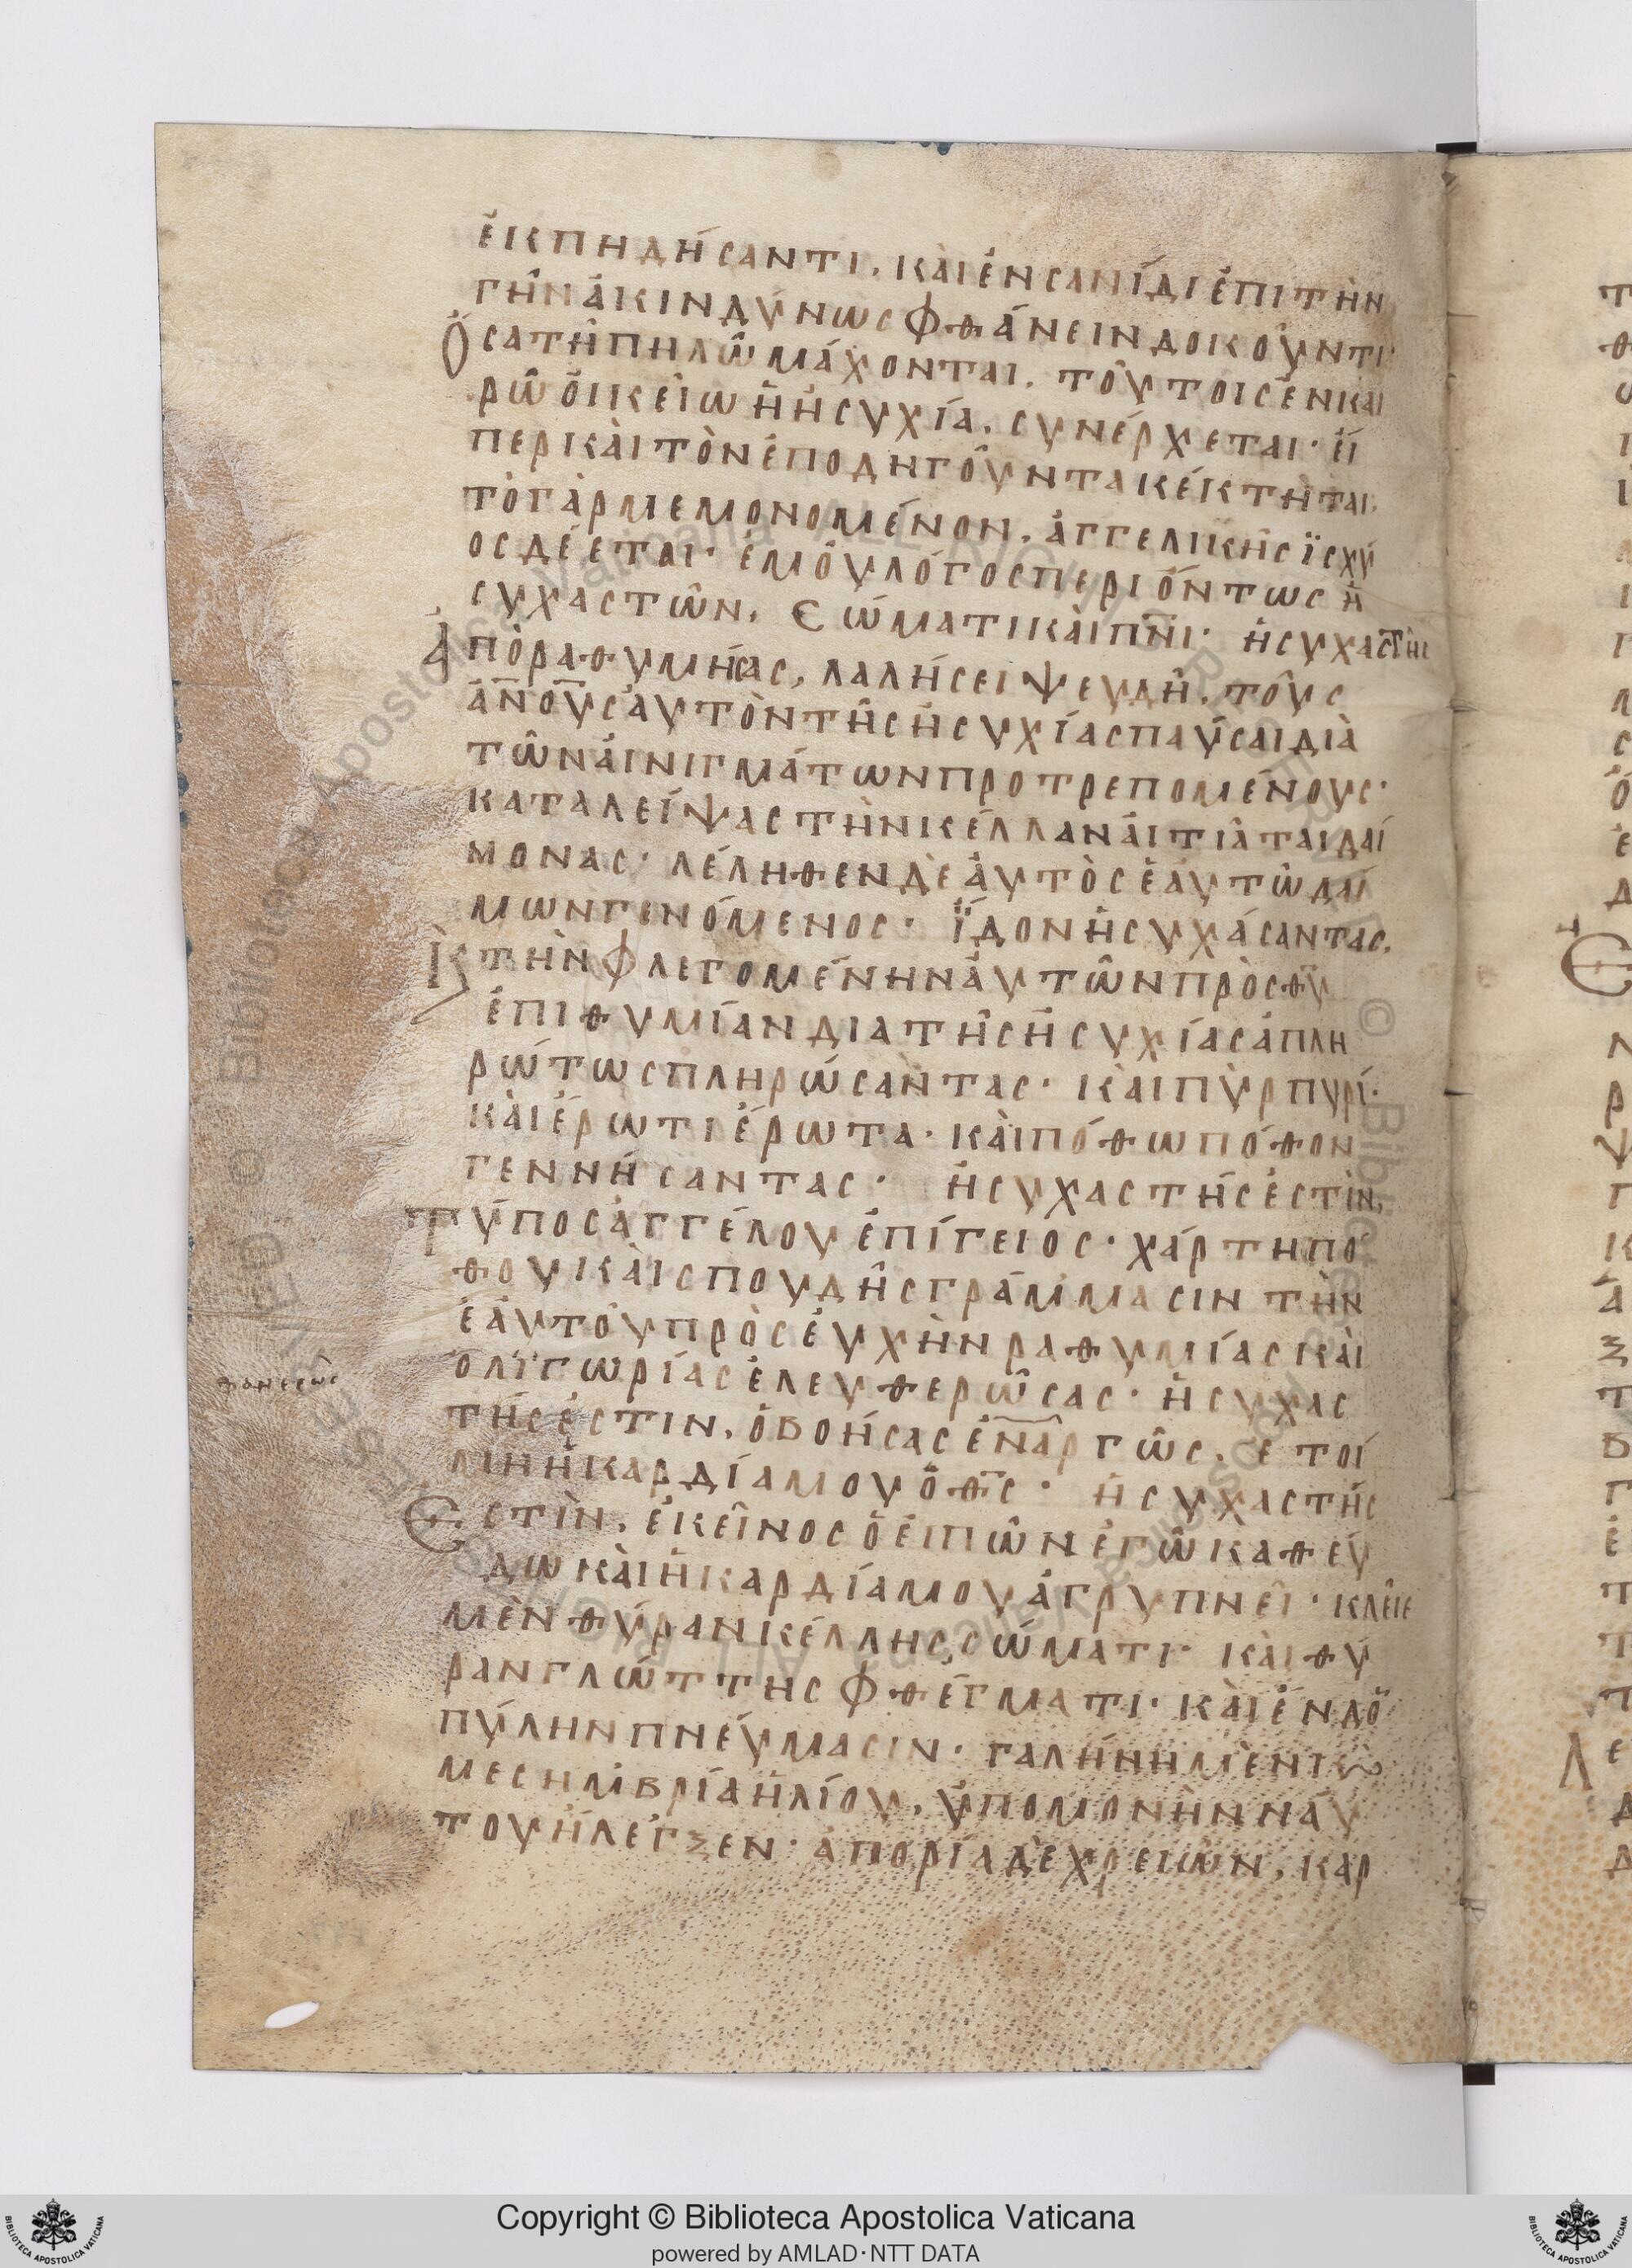 ἐκπηδήσαντι, κὰι ἐν σανίδι ἐπι τὴν
γῆν ἀκινδύνως φθάνειν δοκοῦντι·
ὅσα τῆ πηλῶ μάχονται, τοῦτοις ἐν και
ρῶ ὀικείω ἡ ἡσυχία, συνέρχεται· ἐί
περ κὰι τὸν ἐποδηγοῦντα κέκτηται·
τὸ γὰρ μεμονομένον, ἀγγελικῆς ϊσχύ
ος δέεται· ἐμοῦ λόγος περι ὄντως ἡ
συχαστῶν, σώματι κὰι πνι· ἡσυχαστὴς
ἀπὸ ραθυμήσας, λαλήσει ψευδῆ, τοῦς
ἀνους ἀυτὸν τῆς ἡσυχίας παύσαι διὰ
τῶν ἀινιγμάτων προτρεπομένους·
καταλείψας τὴν κέλλαν ἀιτιᾶται δαί
μονας· λέληθεν δὲ ἀυτὸς ἑαυτῶ δαί
μων γινόμενος· ἴδον ἡσυχάσαντας,
κ τὴν φλεγομένην ἀυτῶν πρὸς θυ
ἐπιθυμίαν δια τῆς ἡσυχίας ἀπλη
ρώτως πληρώσαντας· κὰι πῦρ πυρί·
κὰι ἔρωτι ἔρωτα· κὰι πόθω πόθον
γεννήσαντας· ἡσυχαστής ἐστὶν,
τύπος ἀγγέλου ἐπίγειος· χάρτη πό
θου κὰι σπουδῆς γράμμασιν τὴν
ἑαυτοῦ προσευχὴν ραθυμίας κὰι
ὀλιγωρίας ἐλευθερῶσας· ἡσυχας
τής ἐστιν, ὁ βοήσας ἐναργῶς, ετοί
μη ἡ καρδία μου ὁ θς· ἡσυχαστής
φανερῶς
ἐστὶν, ἐκεῖνος ὁ ἐιπῶν ἐγῶ καθεύ
δω κὰι ἡ καρδία μου ἀγρυπνεῖ· κλεῖε
μὲν θύραν κέλλης σώματι· κὰι θύ
ραν γλώττης φθέγματι· κὰι ἔνδο
πύλην πνέυμασιν· γαλήνη μὲν κ
μεσημβρία ἡλίου, ὑπομονὴν νάυ
του ἤλεγξεν· ἀπορία δὲ χρειῶν, καρ
Copyright © Biblioteca Apostolica Vaticana
powered by AMLAD·NTT DATA